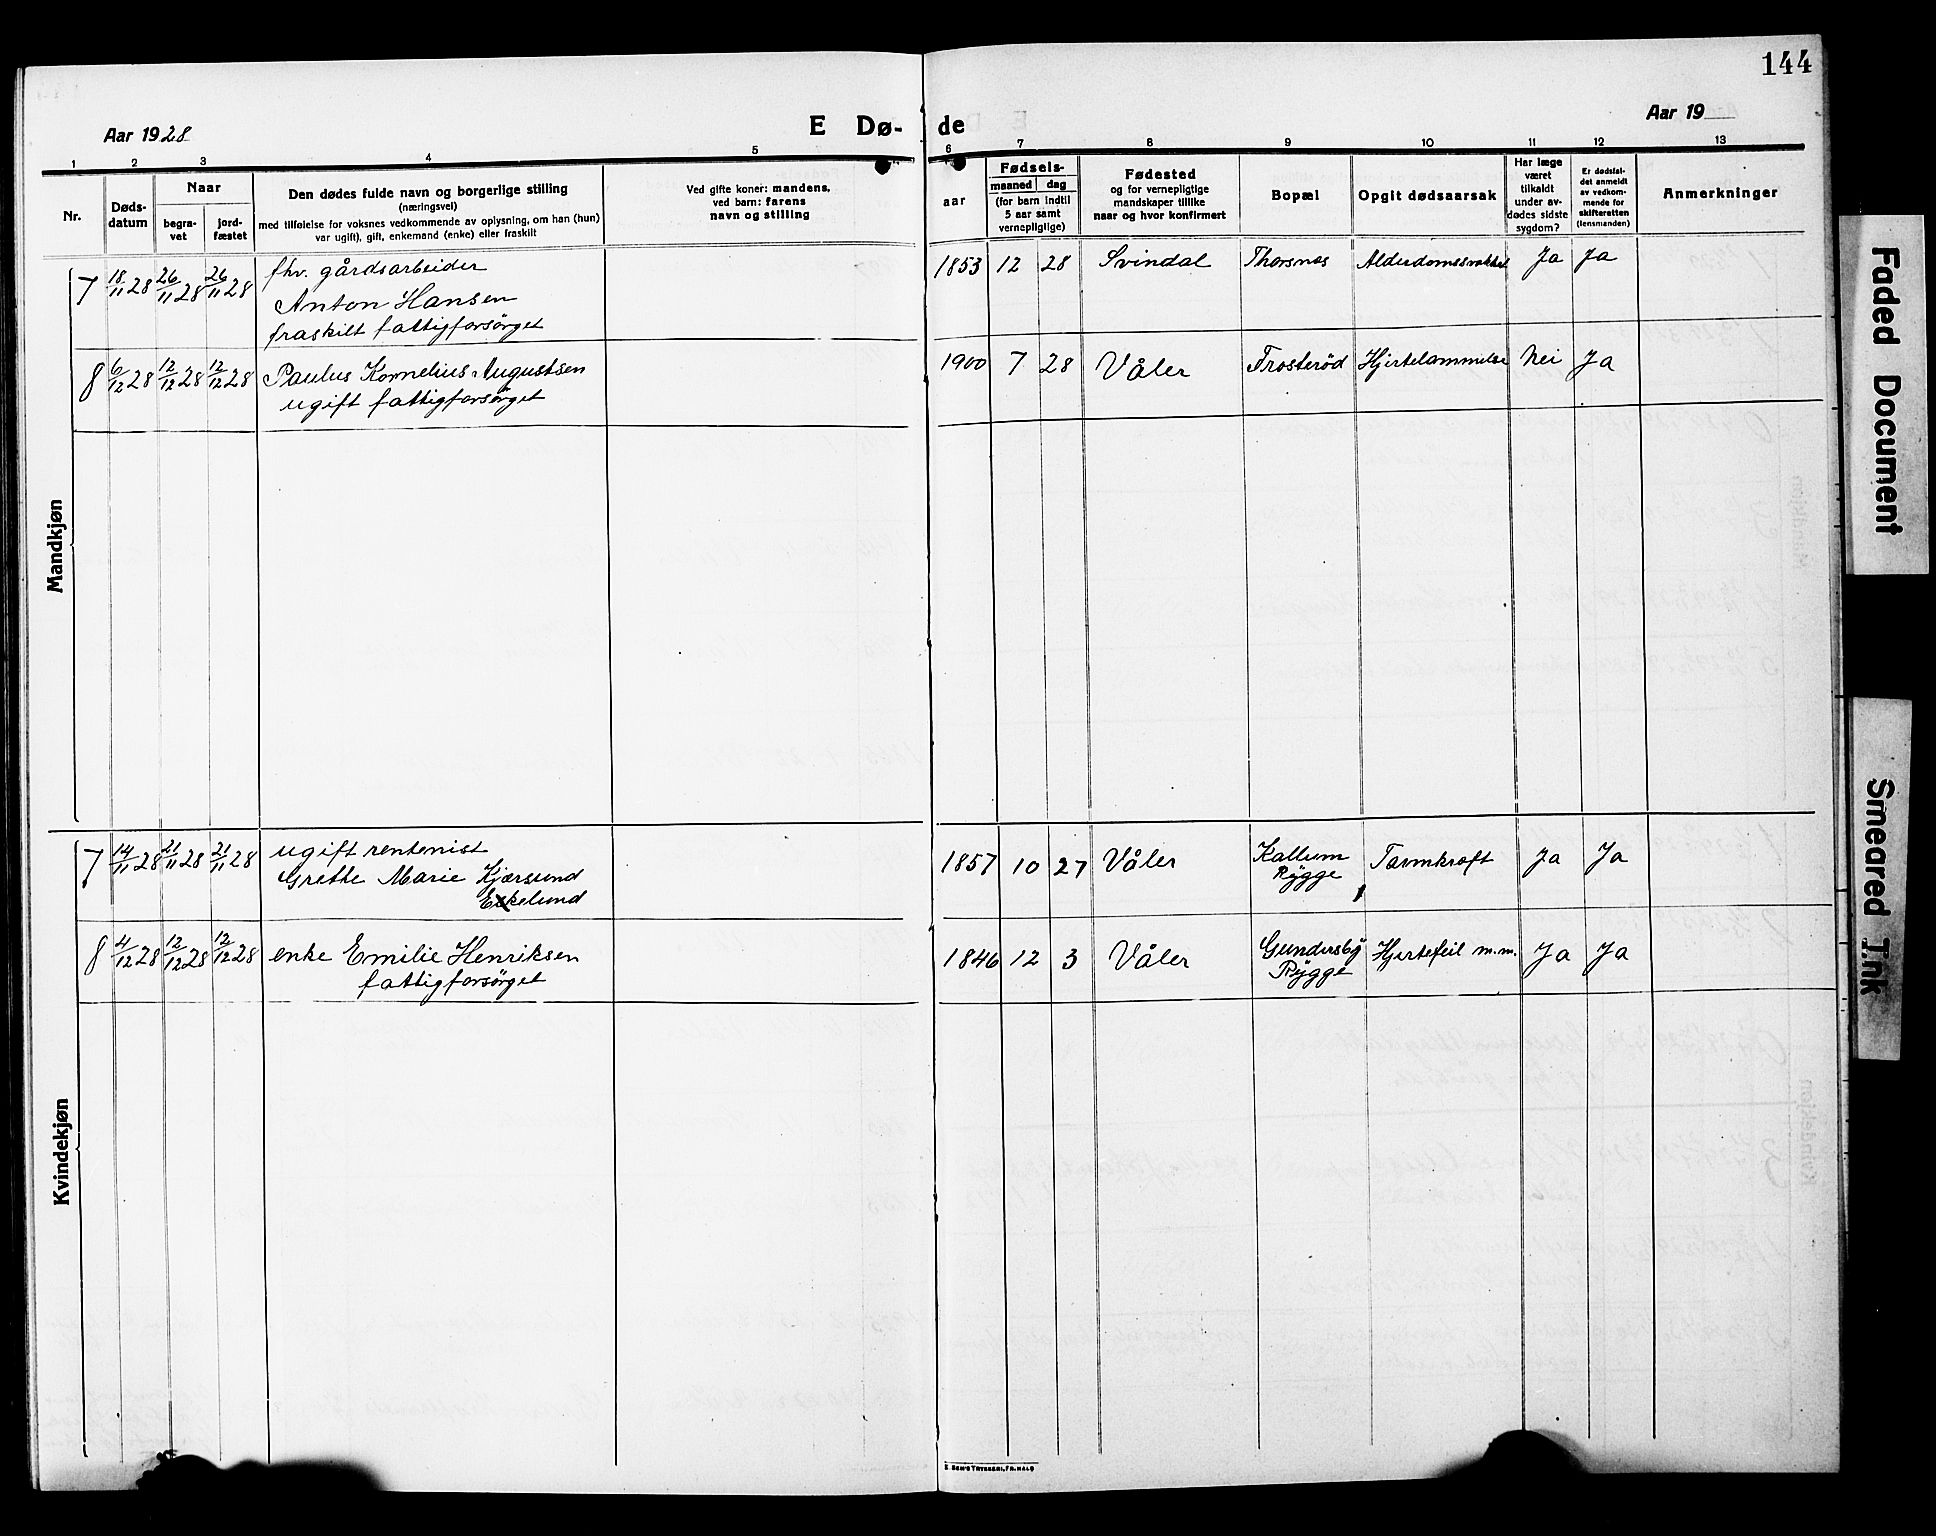 144
Aar 1928
E Dø-
de
Aar 19
1 2 3 4 5 6 7 8 9 10 11 12 13
Nr.
Døds-
datum
Naar
begra-
vet
jord-
fæstet
Den dødes fulde navn og borgerlige stilling
(næringsvei)
med tilføielse for voksnes vedkommende av oplysning, om han (hun)
var ugift), gift, enkemand (enke) eller fraskilt
Ved gifte koner: mandens,
ved barn: farens
navn og stilling
aar
Fødsels-
maaned dag
(for barn indtil
5 aar samt
vernepligtige)
Fødested
og for vernepligtige
mandskaper tillike
naar og hvor konfirmert
Bopæl
Opgit dødsaarsak
Har læge
været
tilkaldt
under av-
dødes sidste
sygdom?
Er dødsfal-
det anmeldt
av vedkom-
mende for
skifteretten
(lensmanden)
Anmerkninger
Mandkjøn
7 18/11 28 26/11 28 26/11 28 fhv. gårdsarbeider
Anton Hansen
fraskilt fattigforsörget
1853 12 28 Svindal Thorsnes Alderdomssvakhet Ja Ja
8 6/12 28 12/12 28 12/12 28 Paulus Kornelius Augustsen
ugift fattigforsörget
1900 7 28 Våler Frosteröd Hjertelammelse Nei Ja
Kvindekjøn
7 14/11 28 21/11 28 21/11 28 ugift rentenist
Grethe Marie Kjærsund
Ekelund
1857 10 27 Våler Kallum
Rygge
Tarmkræft Ja Ja
8 4/12 28 12/12 28 12/12 28 enke Emilie Henriksen
fattigforsörget
1846 12 3 Våler Gundersby
Rygge
Hjertefeil m.m. Ja Ja
Faded Document
Smeared Ink